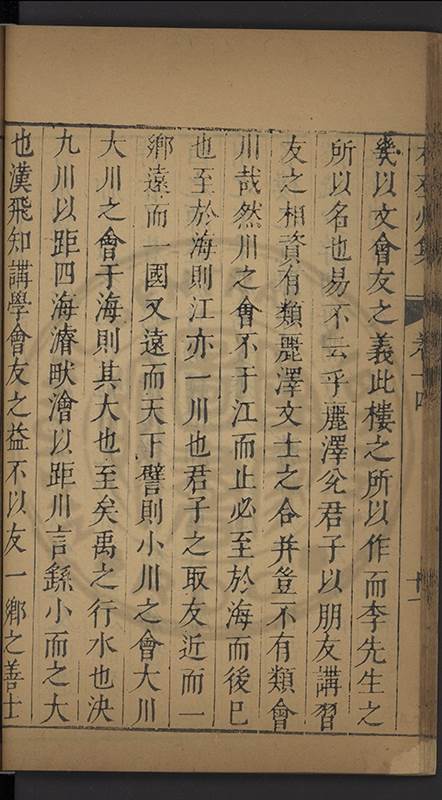 幾以文會友之義此樓之所以作而李先生之
所以名也易不云乎麗澤兌君子以朋友講習
友之相資有類麗澤文士之合并豈不有類會
川哉然川之會不于江而止必至於海而後已
也至於海則江亦一川也君子之取友近而一
鄉遠而一國又遠而天下譬則小川之會大川
大川之會于海則其大也至矣禹之行水也決
九川以距四海濬畎澮以距川言繇小而之大
也漢飛知講學會友之益不以友一鄉之善士